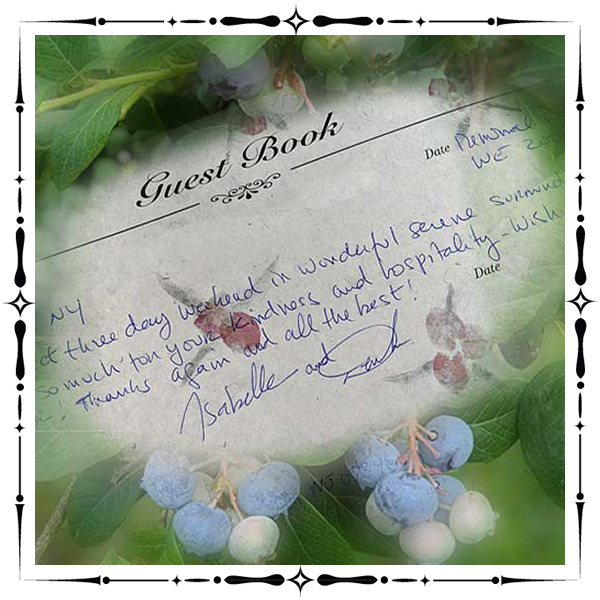 Guest Book
Date Memorial
WE
NY
three day weekend in wonderful serene
so much for your kindness and hospitality. Wish
! Thanks again and all the best!
Date
Isabelle and